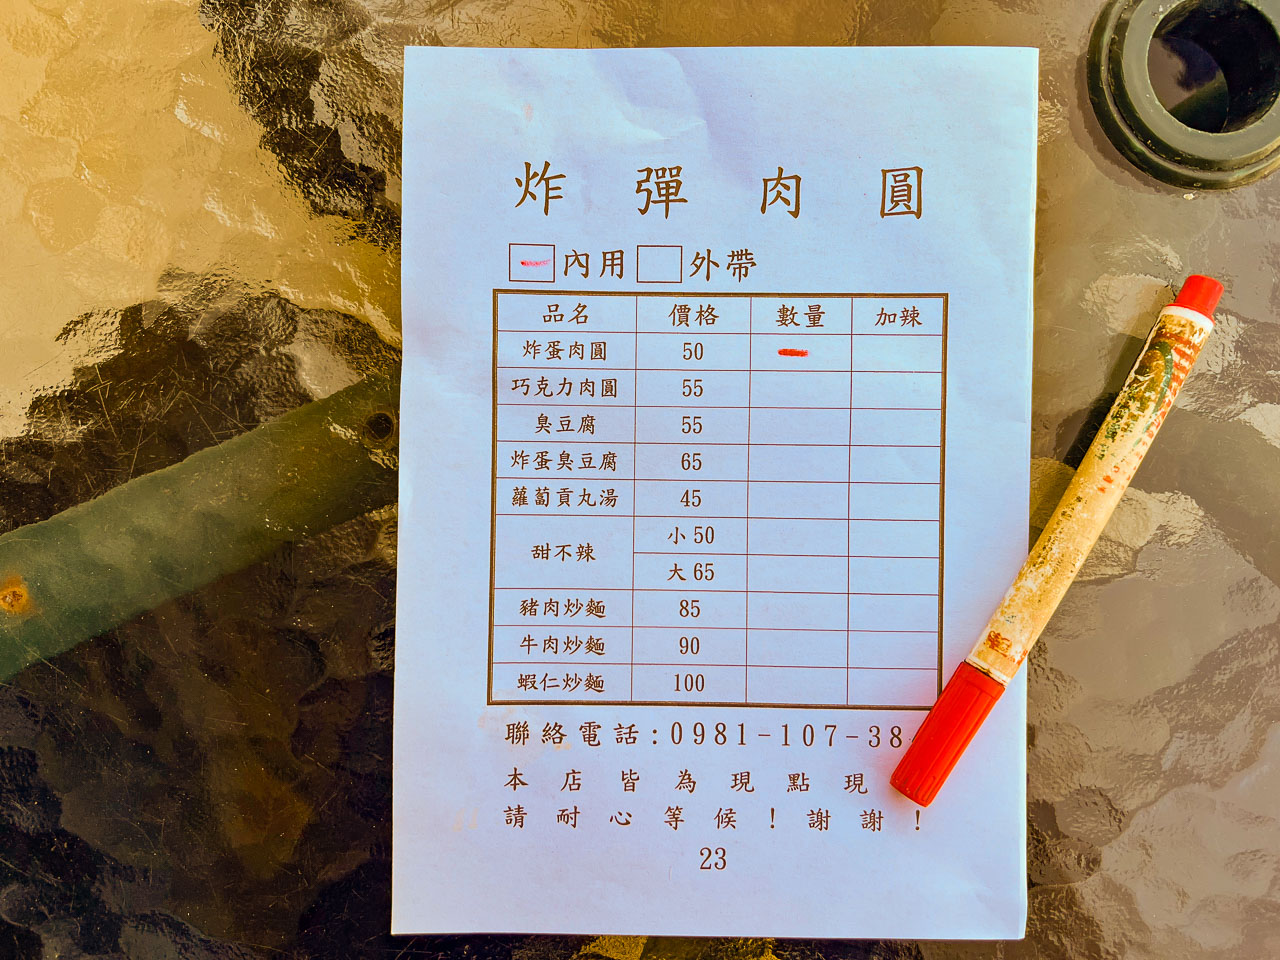 炸彈肉圓
內用 外帶
品名 價格 數量 加辣
炸蛋肉圓 50
巧克力肉圓 55
臭豆腐 55
炸蛋臭豆腐 65
蘿蔔貢丸湯 45
甜不辣 小50
大65
豬肉炒麵 85
牛肉炒麵 90
蝦仁炒麵 100
聯絡電話:0981-107-38
本店皆為現點現
請耐心等候!謝謝!
23